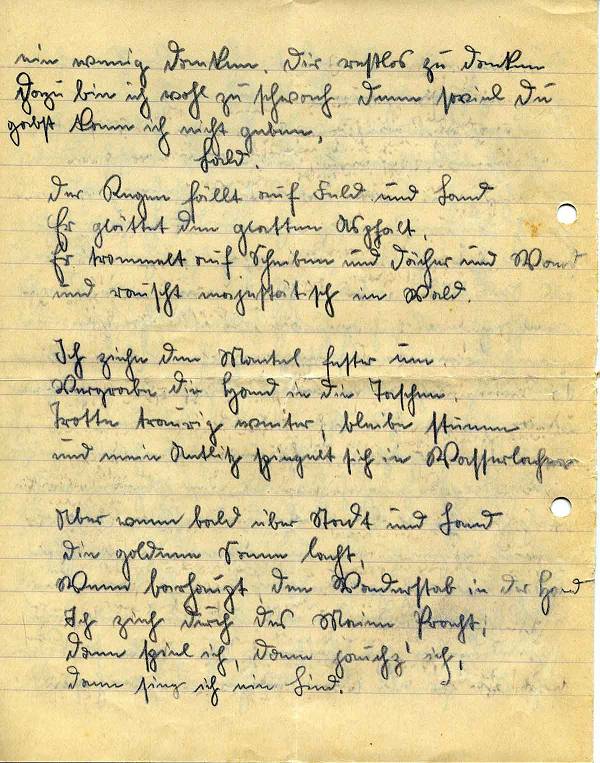 ein wenig danken. Dir restlos zu danken
Dazu bin ich wohl zu schwach denn soviel Du
gabst kann ich nicht geben.
Der Regen fällt auf Feld und Land
Er glättet den glatten Asphalt,
Er trommelt auf Scheiben und Dächer und Wand
und rauscht majestätisch im Wald.
Ich ziehe den Mantel fester um.
Vergrabe die Hand in die Taschen.
Trotte traurig weiter, bleibe stumm
und mein Antlitz spiegelt sich in Wasserlachen
Aber wenn bald über Stadt und Land
die goldene Sonne lacht,
Wenn barhaupt, den Wanderstab in der Hand
Ich zieh durch des Maien Pracht;
dann spiel ich, dann jauchz' ich,
dann sing ich ein Lied.